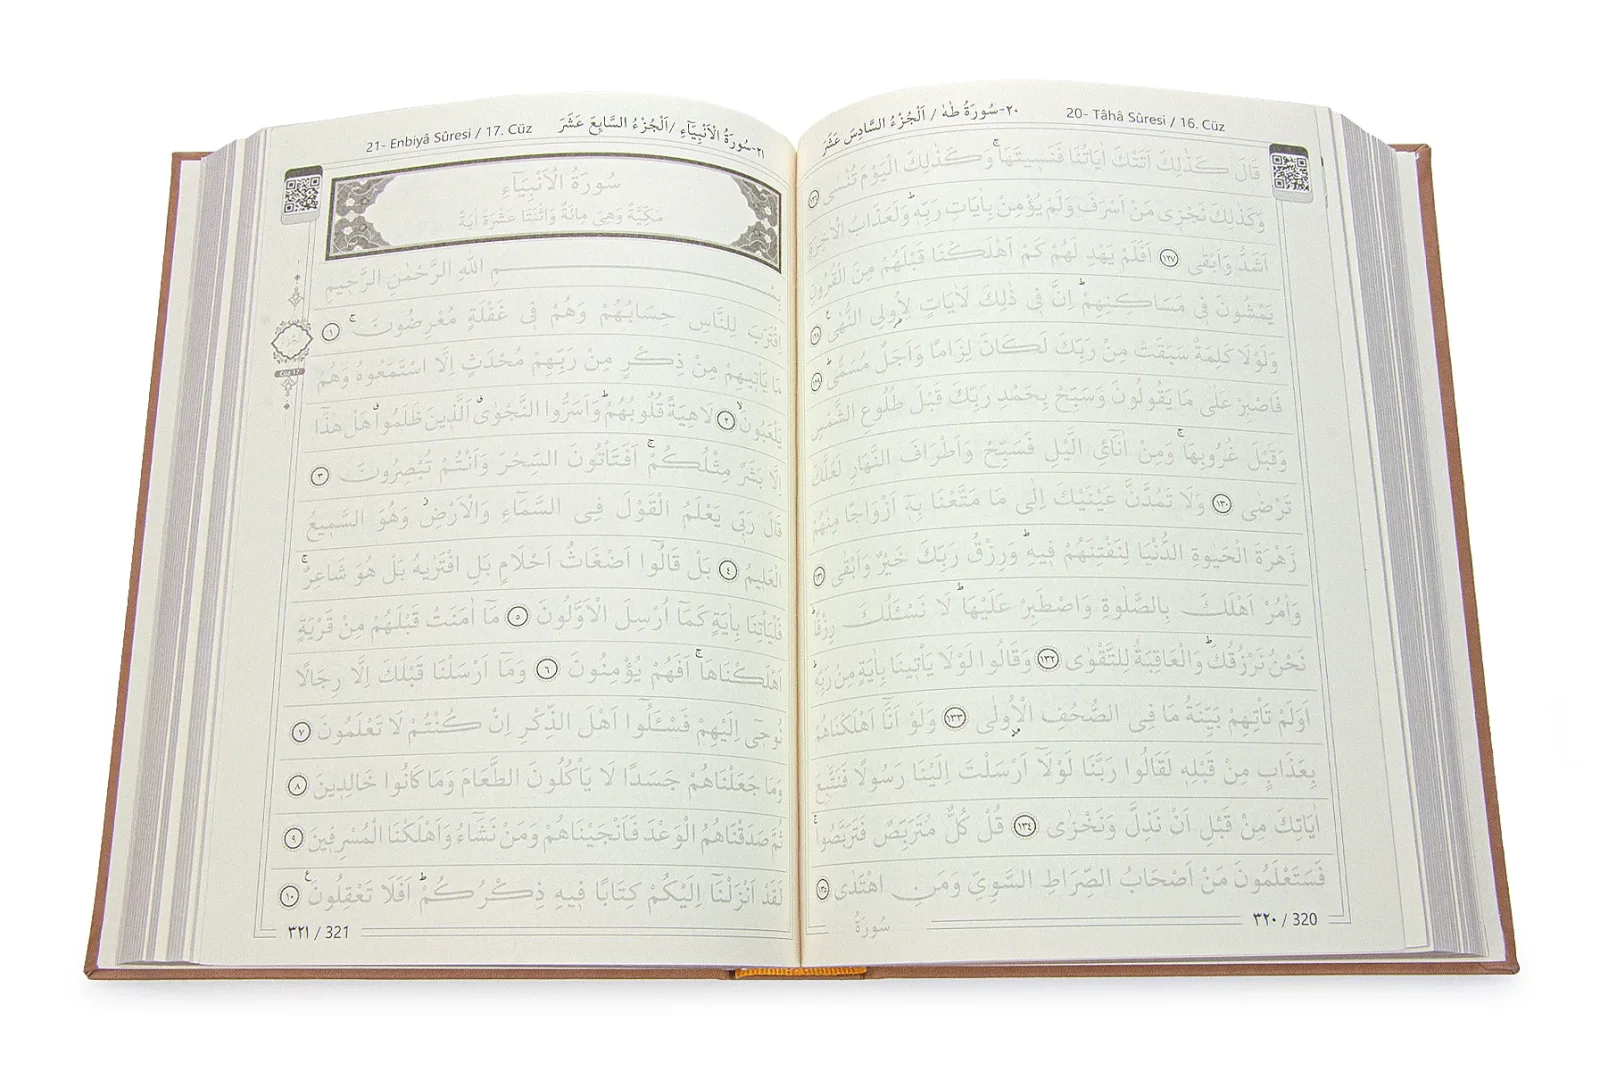 ٢٠-سُورَةُ طٰهٰ / اَلْجُزْءُ السَّادِسَ عَشَرَ
20- Tâhâ Sûresi / 16. Cüz
قَالَ كَذٰلِكَ اَتَتْكَ اٰيَاتُنَا فَنَسٖيتَهَاۚ وَكَذٰلِكَ الْيَوْمَ تُنْسٰى ﴿١٢٦﴾
وَكَذٰلِكَ نَجْزٖي مَنْ اَسْرَفَ وَلَمْ يُؤْمِنْ بِاٰيَاتِ رَبِّهٖؕ وَلَعَذَابُ الْاٰخِرَةِ
اَشَدُّ وَاَبْقٰى ﴿١٢٧﴾ اَفَلَمْ يَهْدِ لَهُمْ كَمْ اَهْلَكْنَا قَبْلَهُمْ مِنَ الْقُرُونِ
يَمْشُونَ فٖي مَسَاكِنِهِمْؕ اِنَّ فٖي ذٰلِكَ لَاٰيَاتٍ لِاُولِي النُّهٰى ﴿١٢٨﴾
وَلَوْلَا كَلِمَةٌ سَبَقَتْ مِنْ رَبِّكَ لَكَانَ لِزَامًا وَاَجَلٌ مُسَمًّىؕ ﴿١٢٩﴾
فَاصْبِرْ عَلٰى مَا يَقُولُونَ وَسَبِّحْ بِحَمْدِ رَبِّكَ قَبْلَ طُلُوعِ الشَّمْسِ
وَقَبْلَ غُرُوبِهَاۚ وَمِنْ اٰنَٓائِ الَّيْلِ فَسَبِّحْ وَاَطْرَافَ النَّهَارِ لَعَلَّكَ
تَرْضٰى ﴿١٣٠﴾ وَلَا تَمُدَّنَّ عَيْنَيْكَ اِلٰى مَا مَتَّعْنَا بِهٖٓ اَزْوَاجًا مِنْهُمْ
زَهْرَةَ الْحَيٰوةِ الدُّنْيَا لِنَفْتِنَهُمْ فٖيهِؕ وَرِزْقُ رَبِّكَ خَيْرٌ وَاَبْقٰى ﴿١٣١﴾
وَأْمُرْ اَهْلَكَ بِالصَّلٰوةِ وَاصْطَبِرْ عَلَيْهَاؕ لَا نَسْـَٔلُكَ رِزْقًاؕ
نَحْنُ نَرْزُقُكَؕ وَالْعَاقِبَةُ لِلتَّقْوٰى ﴿١٣٢﴾ وَقَالُوا لَوْلَا يَأْتٖينَا بِاٰيَةٍ مِنْ رَبِّهٖؕ
اَوَلَمْ تَأْتِهِمْ بَيِّنَةُ مَا فِي الصُّحُفِ الْاُولٰى ﴿١٣٣﴾ وَلَوْ اَنَّٓا اَهْلَكْنَاهُمْ
بِعَذَابٍ مِنْ قَبْلِهٖ لَقَالُوا رَبَّنَا لَوْلَٓا اَرْسَلْتَ اِلَيْنَا رَسُولًا فَنَتَّبِعَ
اٰيَاتِكَ مِنْ قَبْلِ اَنْ نَذِلَّ وَنَخْزٰى ﴿١٣٤﴾ قُلْ كُلٌّ مُتَرَبِّصٌ فَتَرَبَّصُواۚ
فَسَتَعْلَمُونَ مَنْ اَصْحَابُ الصِّرَاطِ السَّوِيِّ وَمَنِ اهْتَدٰى ﴿١٣٥﴾
سُورَةُ
٣٢٠ / 320
21- Enbiyâ Sûresi / 17. Cüz
٢١-سُورَةُ الْاَنْبِيَٓاءِ /اَلْجُزْءُ السَّابِعَ عَشَرَ
سُورَةُ الْاَنْبِيَٓاءِ
مَكِّيَّةٌ وَهِيَ مِائَةٌ وَاثْنَتَا عَشْرَةَ اٰيَةً
بِسْمِ اللهِ الرَّحْمٰنِ الرَّحٖيمِ
اِقْتَرَبَ لِلنَّاسِ حِسَابُهُمْ وَهُمْ فٖي غَفْلَةٍ مُعْرِضُونَۚ ﴿١﴾
مَا يَأْتٖيهِمْ مِنْ ذِكْرٍ مِنْ رَبِّهِمْ مُحْدَثٍ اِلَّا اسْتَمَعُوهُ وَهُمْ
يَلْعَبُونَۙ ﴿٢﴾ لَاهِيَةً قُلُوبُهُمْؕ وَاَسَرُّوا النَّجْوٰىۗ اَلَّذٖينَ ظَلَمُواۗ هَلْ هٰذَٓا
اِلَّا بَشَرٌ مِثْلُكُمْۚ اَفَتَأْتُونَ السِّحْرَ وَاَنْتُمْ تُبْصِرُونَ ﴿٣﴾
قَالَ رَبّٖي يَعْلَمُ الْقَوْلَ فِي السَّمَٓاءِ وَالْاَرْضِؗ وَهُوَ السَّمٖيعُ
الْعَلٖيمُ ﴿٤﴾ بَلْ قَالُٓوا اَضْغَاثُ اَحْلَامٍ بَلِ افْتَرٰيهُ بَلْ هُوَ شَاعِرٌۚ
فَلْيَأْتِنَا بِاٰيَةٍ كَمَٓا اُرْسِلَ الْاَوَّلُونَ ﴿٥﴾ مَٓا اٰمَنَتْ قَبْلَهُمْ مِنْ قَرْيَةٍ
اَهْلَكْنَاهَاۚ اَفَهُمْ يُؤْمِنُونَ ﴿٦﴾ وَمَٓا اَرْسَلْنَا قَبْلَكَ اِلَّا رِجَالًا
نُوحٖٓي اِلَيْهِمْ فَسْـَٔلُٓوا اَهْلَ الذِّكْرِ اِنْ كُنْتُمْ لَا تَعْلَمُونَ ﴿٧﴾
وَمَا جَعَلْنَاهُمْ جَسَدًا لَا يَأْكُلُونَ الطَّعَامَ وَمَا كَانُوا خَالِدٖينَ ﴿٨﴾
ثُمَّ صَدَقْنَاهُمُ الْوَعْدَ فَاَنْجَيْنَاهُمْ وَمَنْ نَشَٓاءُ وَاَهْلَكْنَا الْمُسْرِفٖينَ ﴿٩﴾
لَقَدْ اَنْزَلْنَٓا اِلَيْكُمْ كِتَابًا فٖيهِ ذِكْرُكُمْؕ اَفَلَا تَعْقِلُونَ ﴿١٠﴾
Cüz 17
٣٢١ / 321